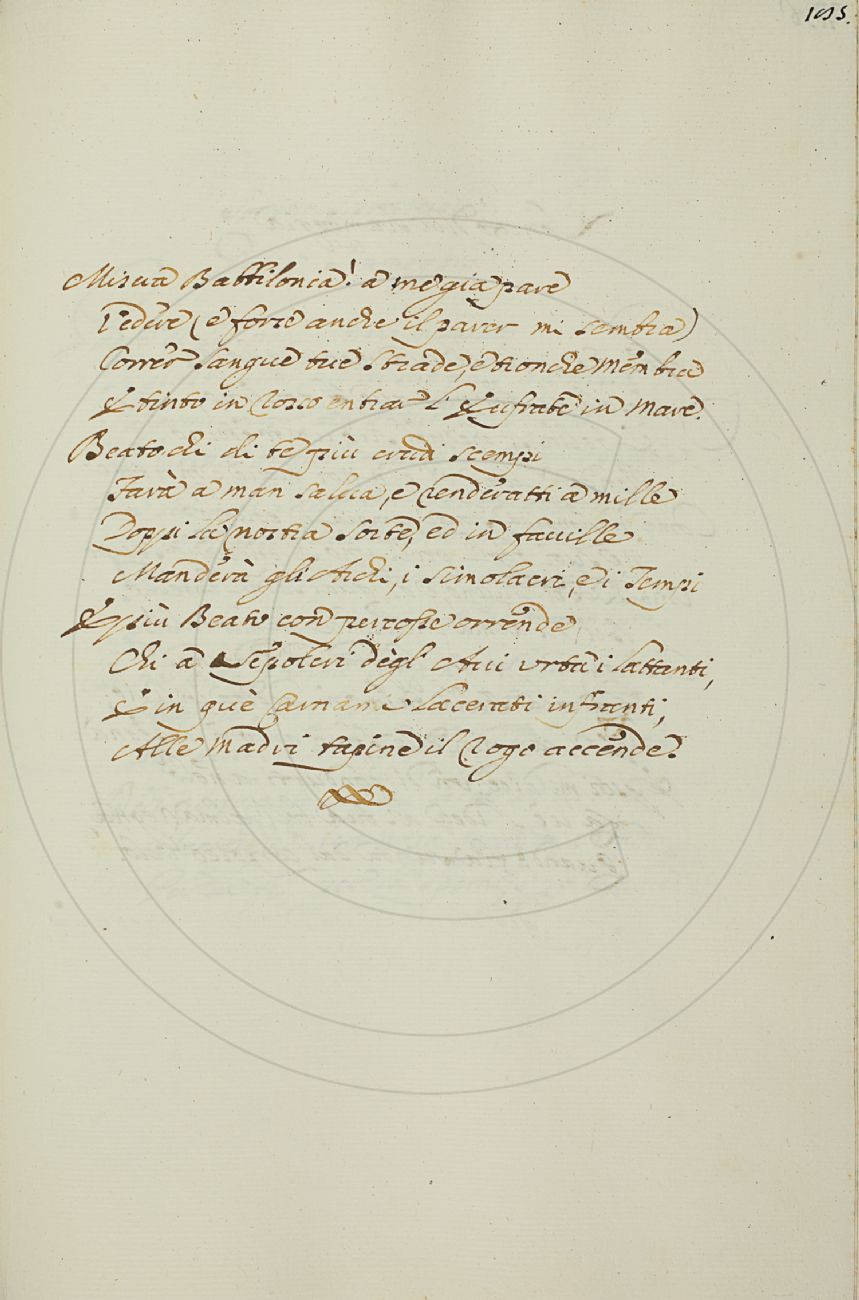 1055.
Misera Babbilonia! a me già pare
Vedere (e forse anche il parer mi sembra)
Correr sangue tue strade, e tronche membra
E tinto in rosso entrar l'Eufrate in mare.
Beato chi di te più crudi scempi
Farà a man salva, e renderatti a mille
Doppi la nostra sorte, ed in faville
Manderà gli Archi, i simolacri, e i Tempi
E più Beato con percosse orrende
Chi a Sepolcri degl'Avi urta i lattanti,
E in què Carnami lacerati infranti,
Alle Madri tapine il rogo accende.